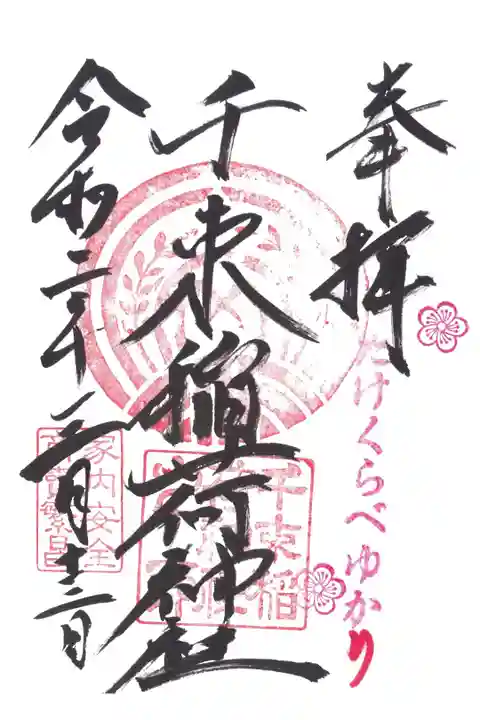 奉拝
たけくらべゆかり
千束稲荷神社
千束稲
家内安全
商賣繁昌
令和二年二月十二日